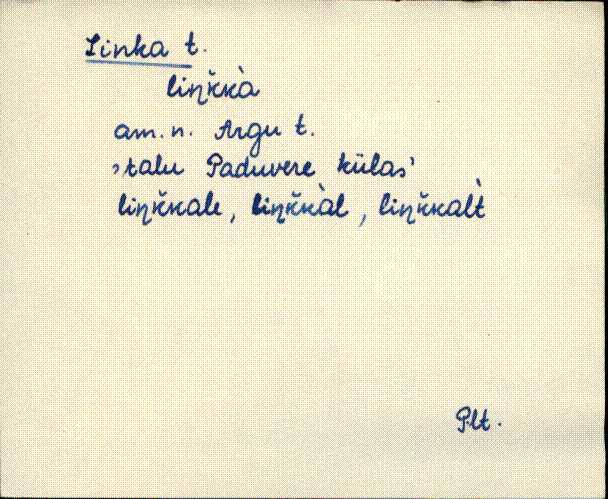 Linka t.
liŋ̆ккà
am. n. Argu t.
›talu Paduvere külas'
liŋ̆ккale, liŋ̆ккàl, liŋ̆ккalt̀
Plt.